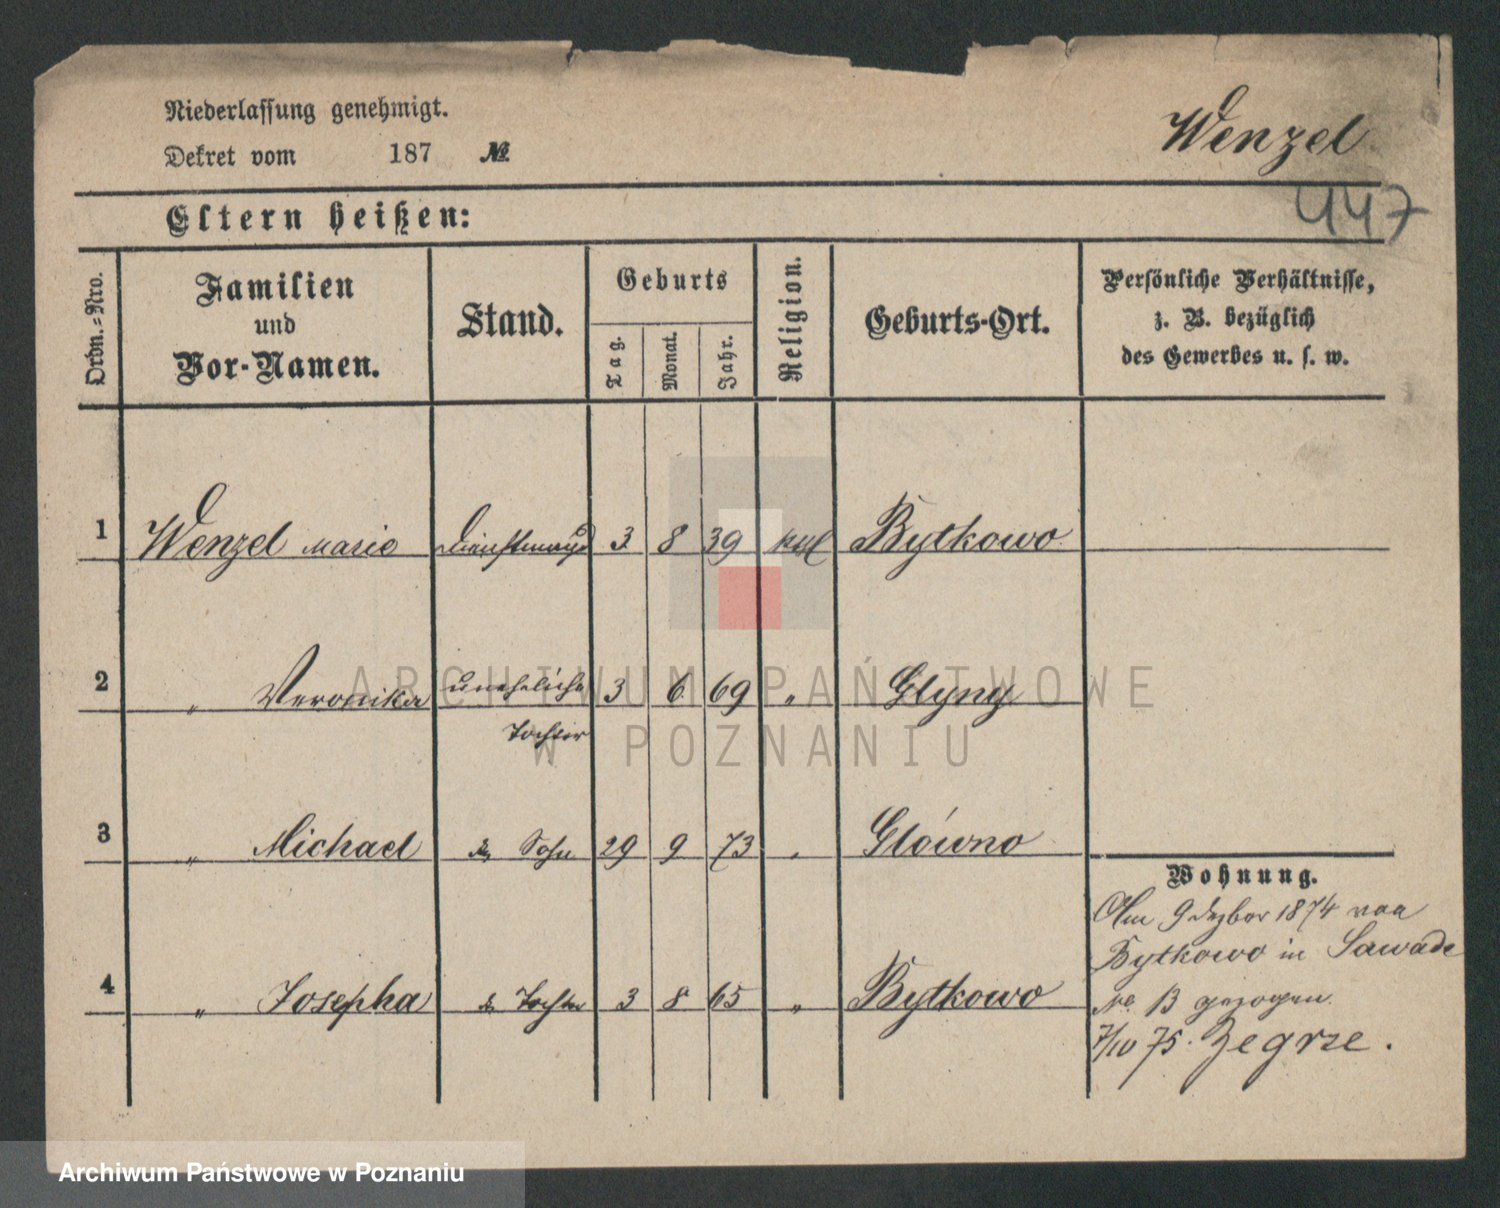 Niederlassung genehmigt.
Dekret vom 187 №
Wenzel
447
Eltern heißen:
Ordn.=Nro.
Familien
und
Vor-Namen.
Stand.
Geburts
Tag.
Monat.
Jahr.
Religion.
Geburts-Ort.
Persönliche Verhältnisse,
z. B. bezüglich
des Gewerbes u. s. w.
1 Wenzel Marie Dienstmagd 3 8 39 kath Bytkowo
2 " Veronika uneheliche 3 6 69 " Glyny
Tochter
3 " Michael do Sohn 29 9 73 " Glówno
4 " Josepha do Tochter 3 8 65 " Bytkowo
Wohnung.
Am 9 Dezber 1874 von
Bytkowo in Sawade
No 13 gezogen
75. Zegrze.
ARCHIWUM PAŃSTWOWE
W POZNANIU
Archiwum Państwowe w Poznaniu